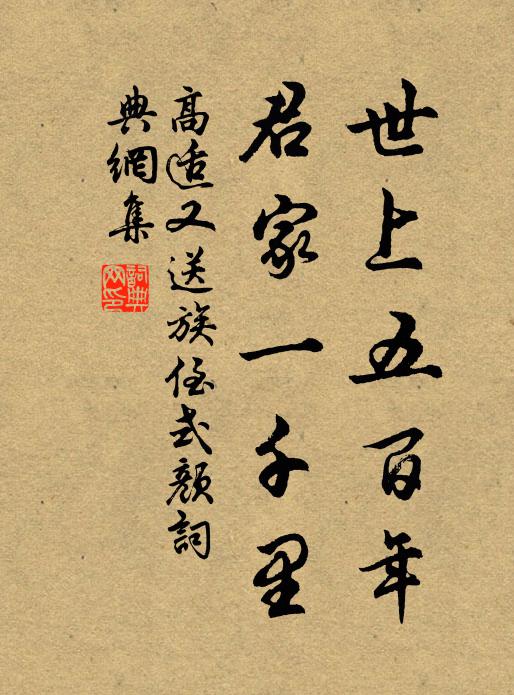 世上五百年
君家一千里
高适又送族侄式颜詞
典網集
詞典
网印